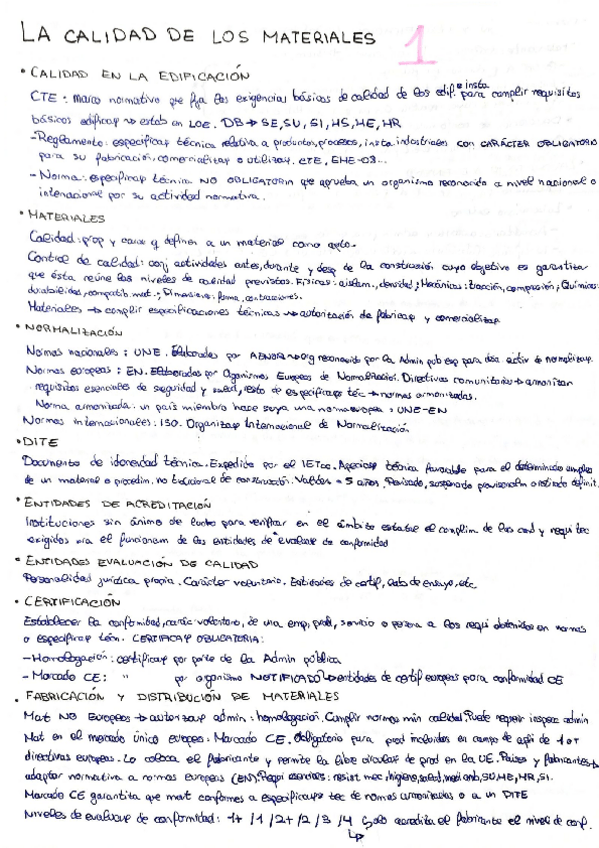 LA CALIDAD DE LOS MATERIALES 1
• CALIDAD EN LA EDIFICACIÓN
CTE: marco normativo que fija las exigencias básicas de calidad de los edif. e insta. para cumplir requisitos
básicos edificaç estab en LOE. DB → SE, SU, SI, HS, HE, HR
- Reglamento: especificaç técnica relativa a productos, procesos, insta. industriales con CARÁCTER OBLIGATORIO
para su fabricación, comercializaç o utilizaç. CTE, EHE-08...
- Norma: especificaç técnica NO OBLIGATORIA que aprueba un organismo reconocido a nivel nacional o
internacional por su actividad normativa.
• MATERIALES
Calidad: prop y caract q definen a un material como apto.
Control de calidad: conj actividades antes, durante y desp de la construcción cuyo objetivo es garantizar
que ésta reúne los niveles de calidad previstos. Físicas: aislam., densidad; Mecánicas: tracción, compresión; Químicas:
durabilidad, compatib. mat.; Dimensiones: forma,
Materiales → cumplir especificaciones técnicas → autorización de fabricaç y comercializaç
• NORMALIZACIÓN
Normas nacionales: UNE. Elaboradas por AENOR → org reconocido por la Admin pub esp para desa activ de normalizaç.
Normas europeas: EN. Elaboradas por Organismos Europeos de Normalización. Directivas comunitarias → armonizan
requisitos esenciales de seguridad y salud, resto de especificaç téc → normas armonizadas.
Norma armonizada: un país miembro hace suya una norma europea: UNE-EN
Normas internacionales: ISO. Organizaç Internacional de Normalización
• DITE
Documento de idoneidad técnica. Expedido por el IETcc. Apreciaç técnica favorable para el determinado empleo
de un material o procedim. no tradicional de construcción. Validez = 5 años. Revisado, suspendido provisionalm o retirado definit.
• ENTIDADES DE ACREDITACIÓN
Instituciones sin ánimo de lucro para verificar en el ámbito estatal el cumplim. de las cond y requi tec
exigidos para el funcionam de las entidades de evaluaç de conformidad
• ENTIDADES EVALUACIÓN DE CALIDAD
Personalidad jurídica propia. Carácter voluntario. Entidades de certif, labs de ensayo, etc
• CERTIFICACIÓN
Establecer la conformidad, carác voluntario, de una emp, prod, servicio o persona a los requi definidos en normas
o especificaç técn. CERTIFICAÇ OBLIGATORIA:
- Homologación: certificaç por parte de la Admin pública
- Marcado CE: " por organismo NOTIFICADO → entidades de certif europeas para conformidad CE
• FABRICACIÓN Y DISTRIBUCIÓN DE MATERIALES
Mat NO Europeos → autorizaç admin: homologación. Cumplir normas mín calidad. Puede requerir inspecc admin
Mat en el mercado único europeo: Marcado CE. Obligatorio para prod incluidos en campo de apli de 1 o +
directivas europeas. Lo coloca el fabricante y permite la libre circulaç de prod en la UE. Países y fabricantes →
adaptar normativa a normas europeas (EN). Requi esenciales: resist mec, higiene, salud, medi amb, SU, HE, HR, SI.
Marcado CE garantiza que mat conformes a especificaç tec de normas armonizadas o a un DITE
Niveles de evaluaç de conformidad: 1+ / 1 / 2+ / 2 / 3 / 4 solo acredita el fabricante el nivel de conf.